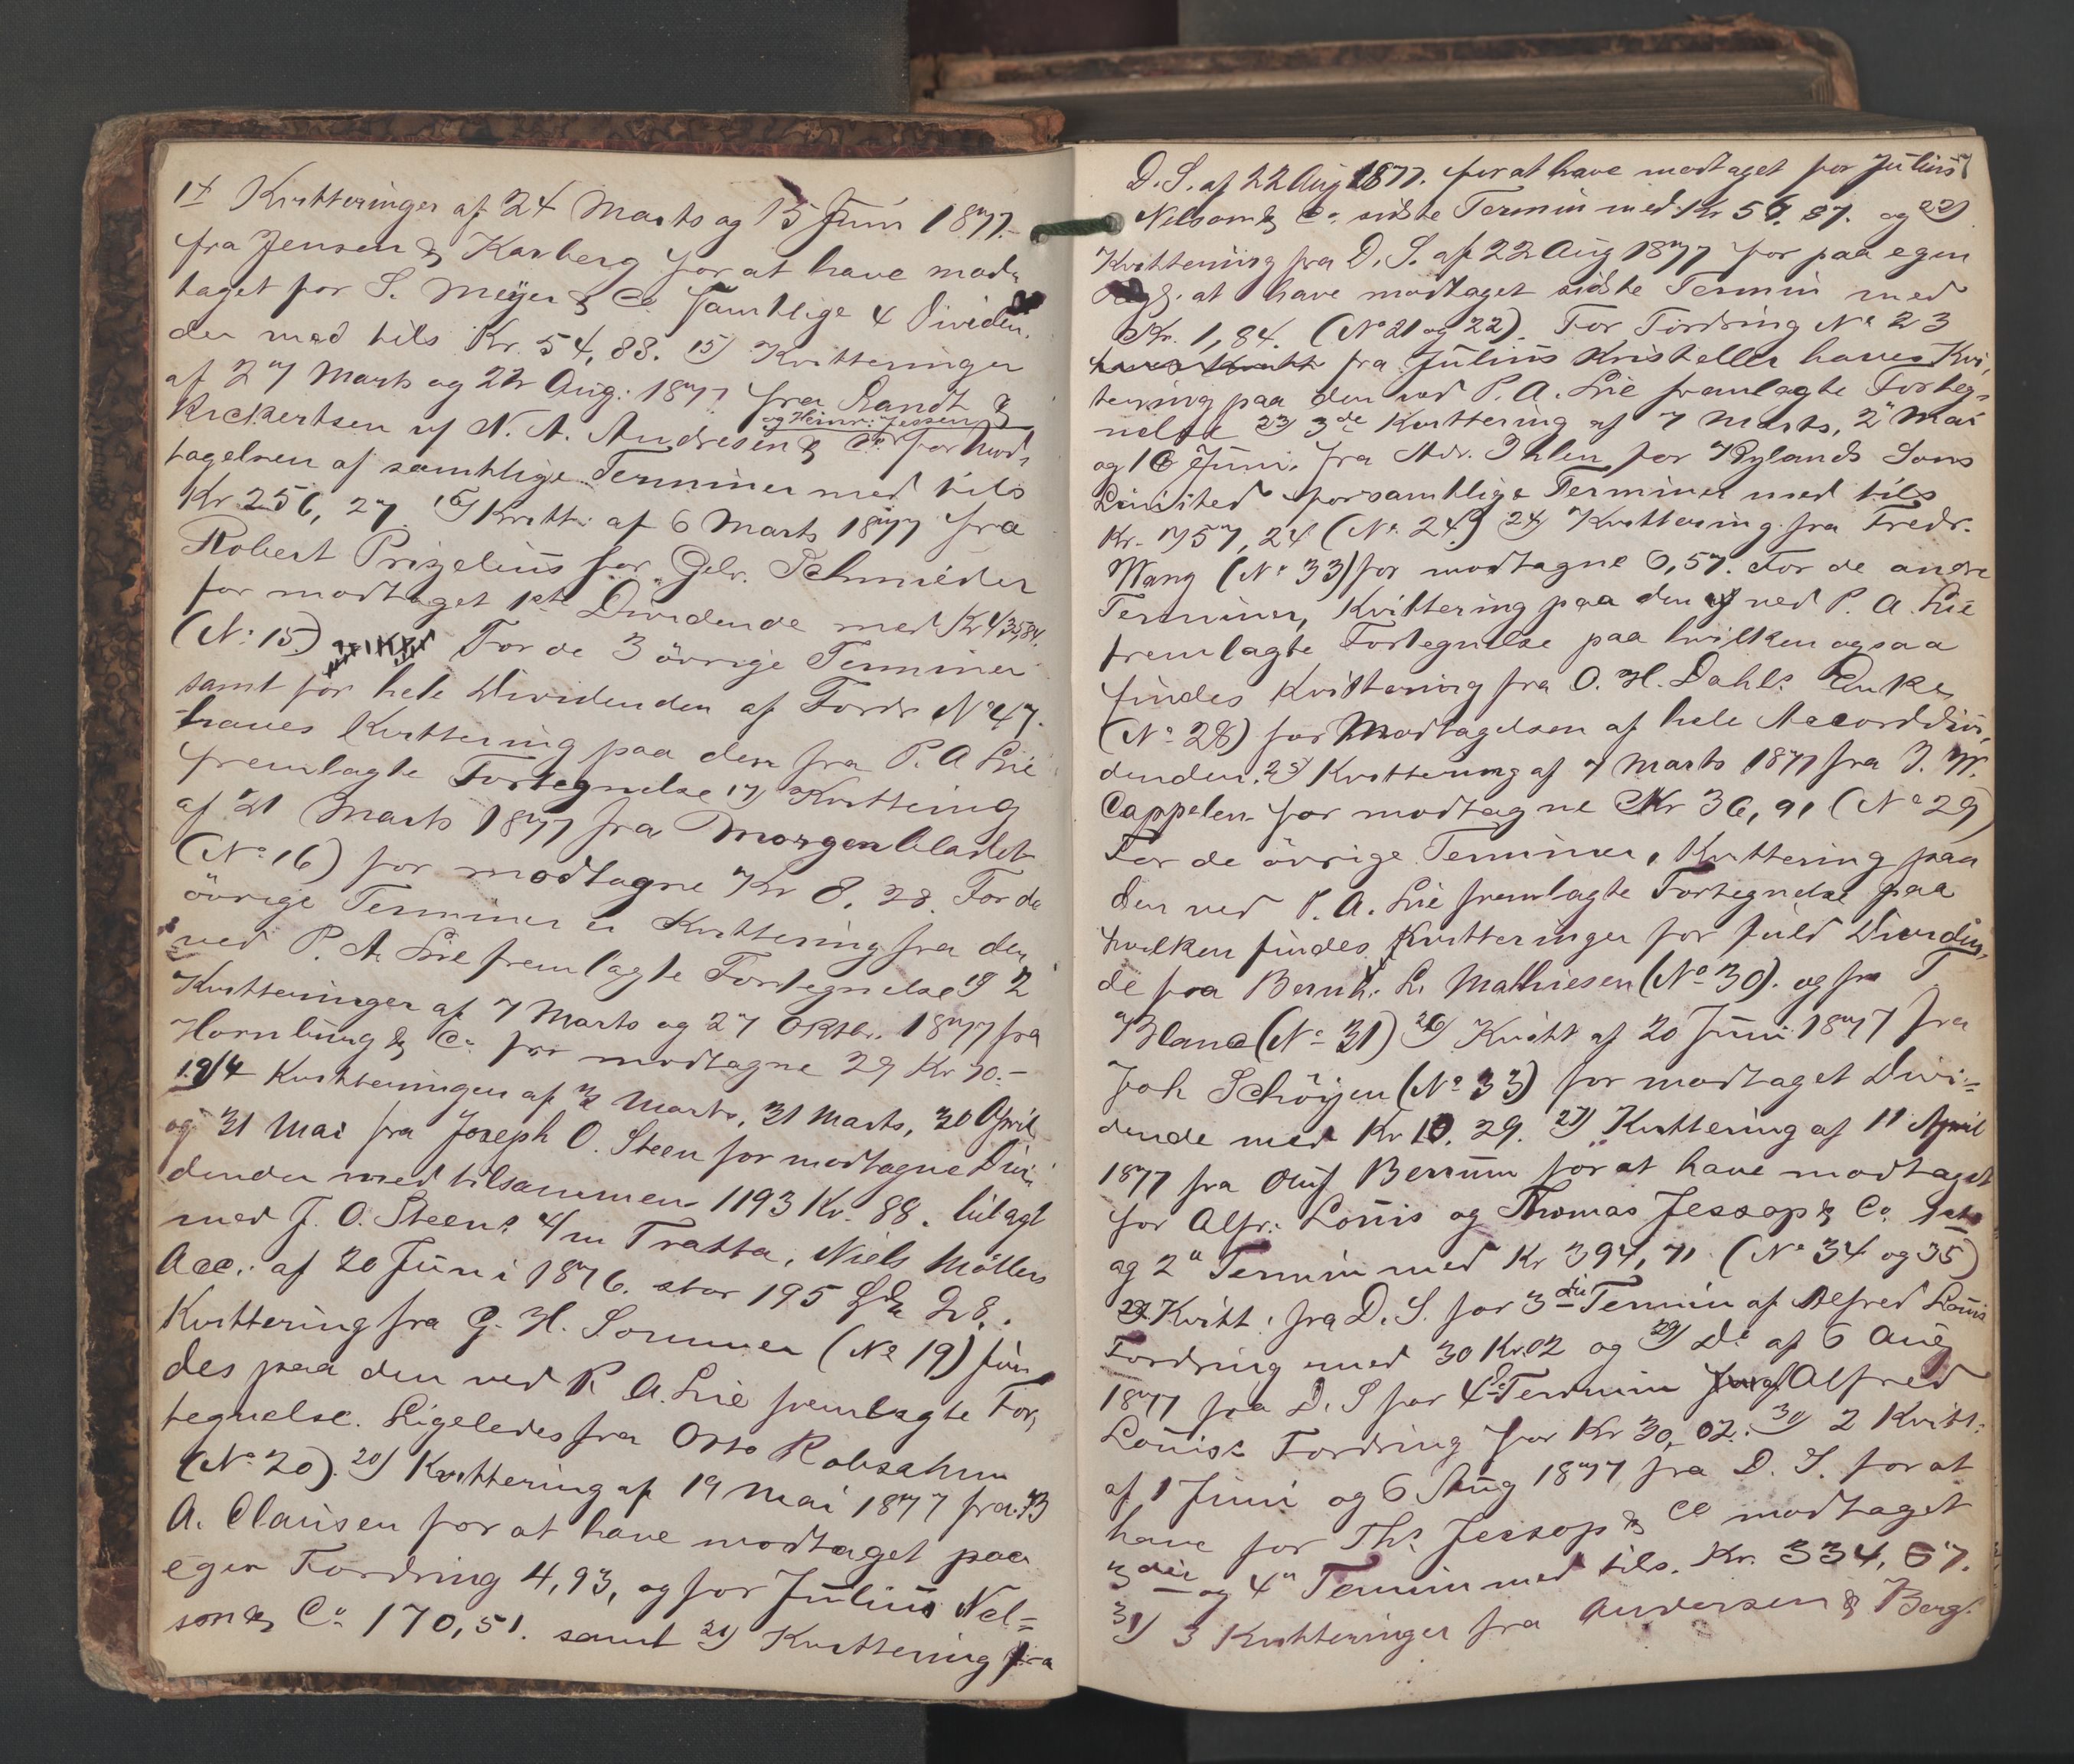 14 Kvitteringer af 24 Marts og 15 Juni 1877.
fra Jensen & Karberg for at have mod-
taget for S. Meÿer & Co samtlige 4 Dividen,
der med tils Kr. 54,88. 15) Kvitteringer
af 27 Marts og 22 Aug: 1877 fra Randt &
og Heinr: Jessen
Rickertsen af N. A. Andresen & Co for Mod-
tagelsen af samtlige Terminer med tils
Kr 256,27. 16) Kvitt: af 6 Marts 1877 fra
Robert Prizelius for Gebr. Schmieder
for modtaget 1ste Dividende med Kr 435,84.
(No 15.) For de 3 övrige Terminer
samt for hele Dividenden af Fordr No 47.
haves Kvittering paa den fra P. A Lie
fremlagte Fortegnelse 17) Kvittering
af 21 Marts 1877 fra Morgenbladet
(No 16) for modtagne Kr 8.28. For de
övrige Terminer er Kvittering fra den
ved P. A Lie fremlagte Fortegnelse 18 2
Kvitteringer af 7 Marts og 27 Oktbr. 1877 fra
Hornburg & Co for modtagne 29 Kr 70.-
19/4 Kvitteringer af 3 Marts, 31 Marts, 30 April
og 31 Mai fra Joseph O. Steen for modtagne Divi
dender med tilsammen 1193 Kr. 88. bilagt
med J. O. Steens 4/m Tratta, Niels Möllers
Acc. af 20 Juni 1876. stor 195 2.8.
Kvittering fra G. H. Sommer (No 19) fin
des paa den ved P. A. Lie fremlagte For,
tegnelse. Ligeledes fra Otto Robsahm
(No 20). 20) Kvittering af 19 Mai 1877 fra B
A. Clausen for at have modtaget paa
egen Fordring 4,93, og for Julius Nel=
son & Co 170,51. samt 21) Kvittering fra
D. S. af 22 Aug 1877. for at have modtaget for Julius
Nelson & Co sidste Termin med Kr 56.87. og 22)
Kvittering fra D. S. af 22 Aug 1877 for paa egen
at have modtaget sidste Termin med
Kr. 1,84. (No 21 og 22). For Fordring No 23
haves Kvitt fra Julius Kristeller haves Kvi,
tering paa den ved P. A. Lie fremlagte Forteg,
nelse 23) 3de Kvittering af 7 Marts, 2 Mai
og 16 Juni. fra Adr. Ihlen for Rylands Sons
Limited for samtlige Terminer med tils
Kr. 757,24 (No. 24.) 24) Kvittering fra Fredr.
Wang (No 33) for modtagne 0,57. For de andre
Terminer, Kvittering paa den af ved P. A. Lie
fremlagte Fortegnelse paa hvilken ogsaa
findes Kvittering fra O. H. Dahls Enke
(No 28) for Modtagelsen af hele Accorddivi,
denden. 25) Kvittering af 7 Marts 1877 fra J. W.
Cappelen for modtagne Kr 36,91 (No 29)
For de övrige Terminer, Kvittering paa
den ved P. A. Lie fremlagte Fortegnelse paa
hvilken findes Kvitteringer for fuld Dividen,
de fra Bernh: L. Mathiesen (No 30). og fra T
Blanc (No 31) 26) Kvitt af 20 Juni 1877 fra
Joh Schöyen (No 33) for modtaget Divi=
dende med Kr 10.29. 27) Kvittering af 11 April
1877 fra Oluf Berrum for at have modtaget
for Alfr: Louis og Thomas Jessop & Co 1ste
og 2n Termin med Kr 394,71 (No 34 og 35)
28 Kvitt. fra D. S. for 3die Termin af Alfred Louis
Fordring med 30 Kr. 02 og 29) Do af 6 Aug
1877 fra D. S for 4de Termin af Alfred
Louiss Fordring for Kr 30,02. 30) 2 Kvitt:
af 1 Juni og 6 Aug 1877 fra D. S. for at
have for Ths Jessop & Co modtaget
3die og 4n Termin med tils. Kr. 334,67.
31) 3 Kvitteringer fra Andersen & Berg.